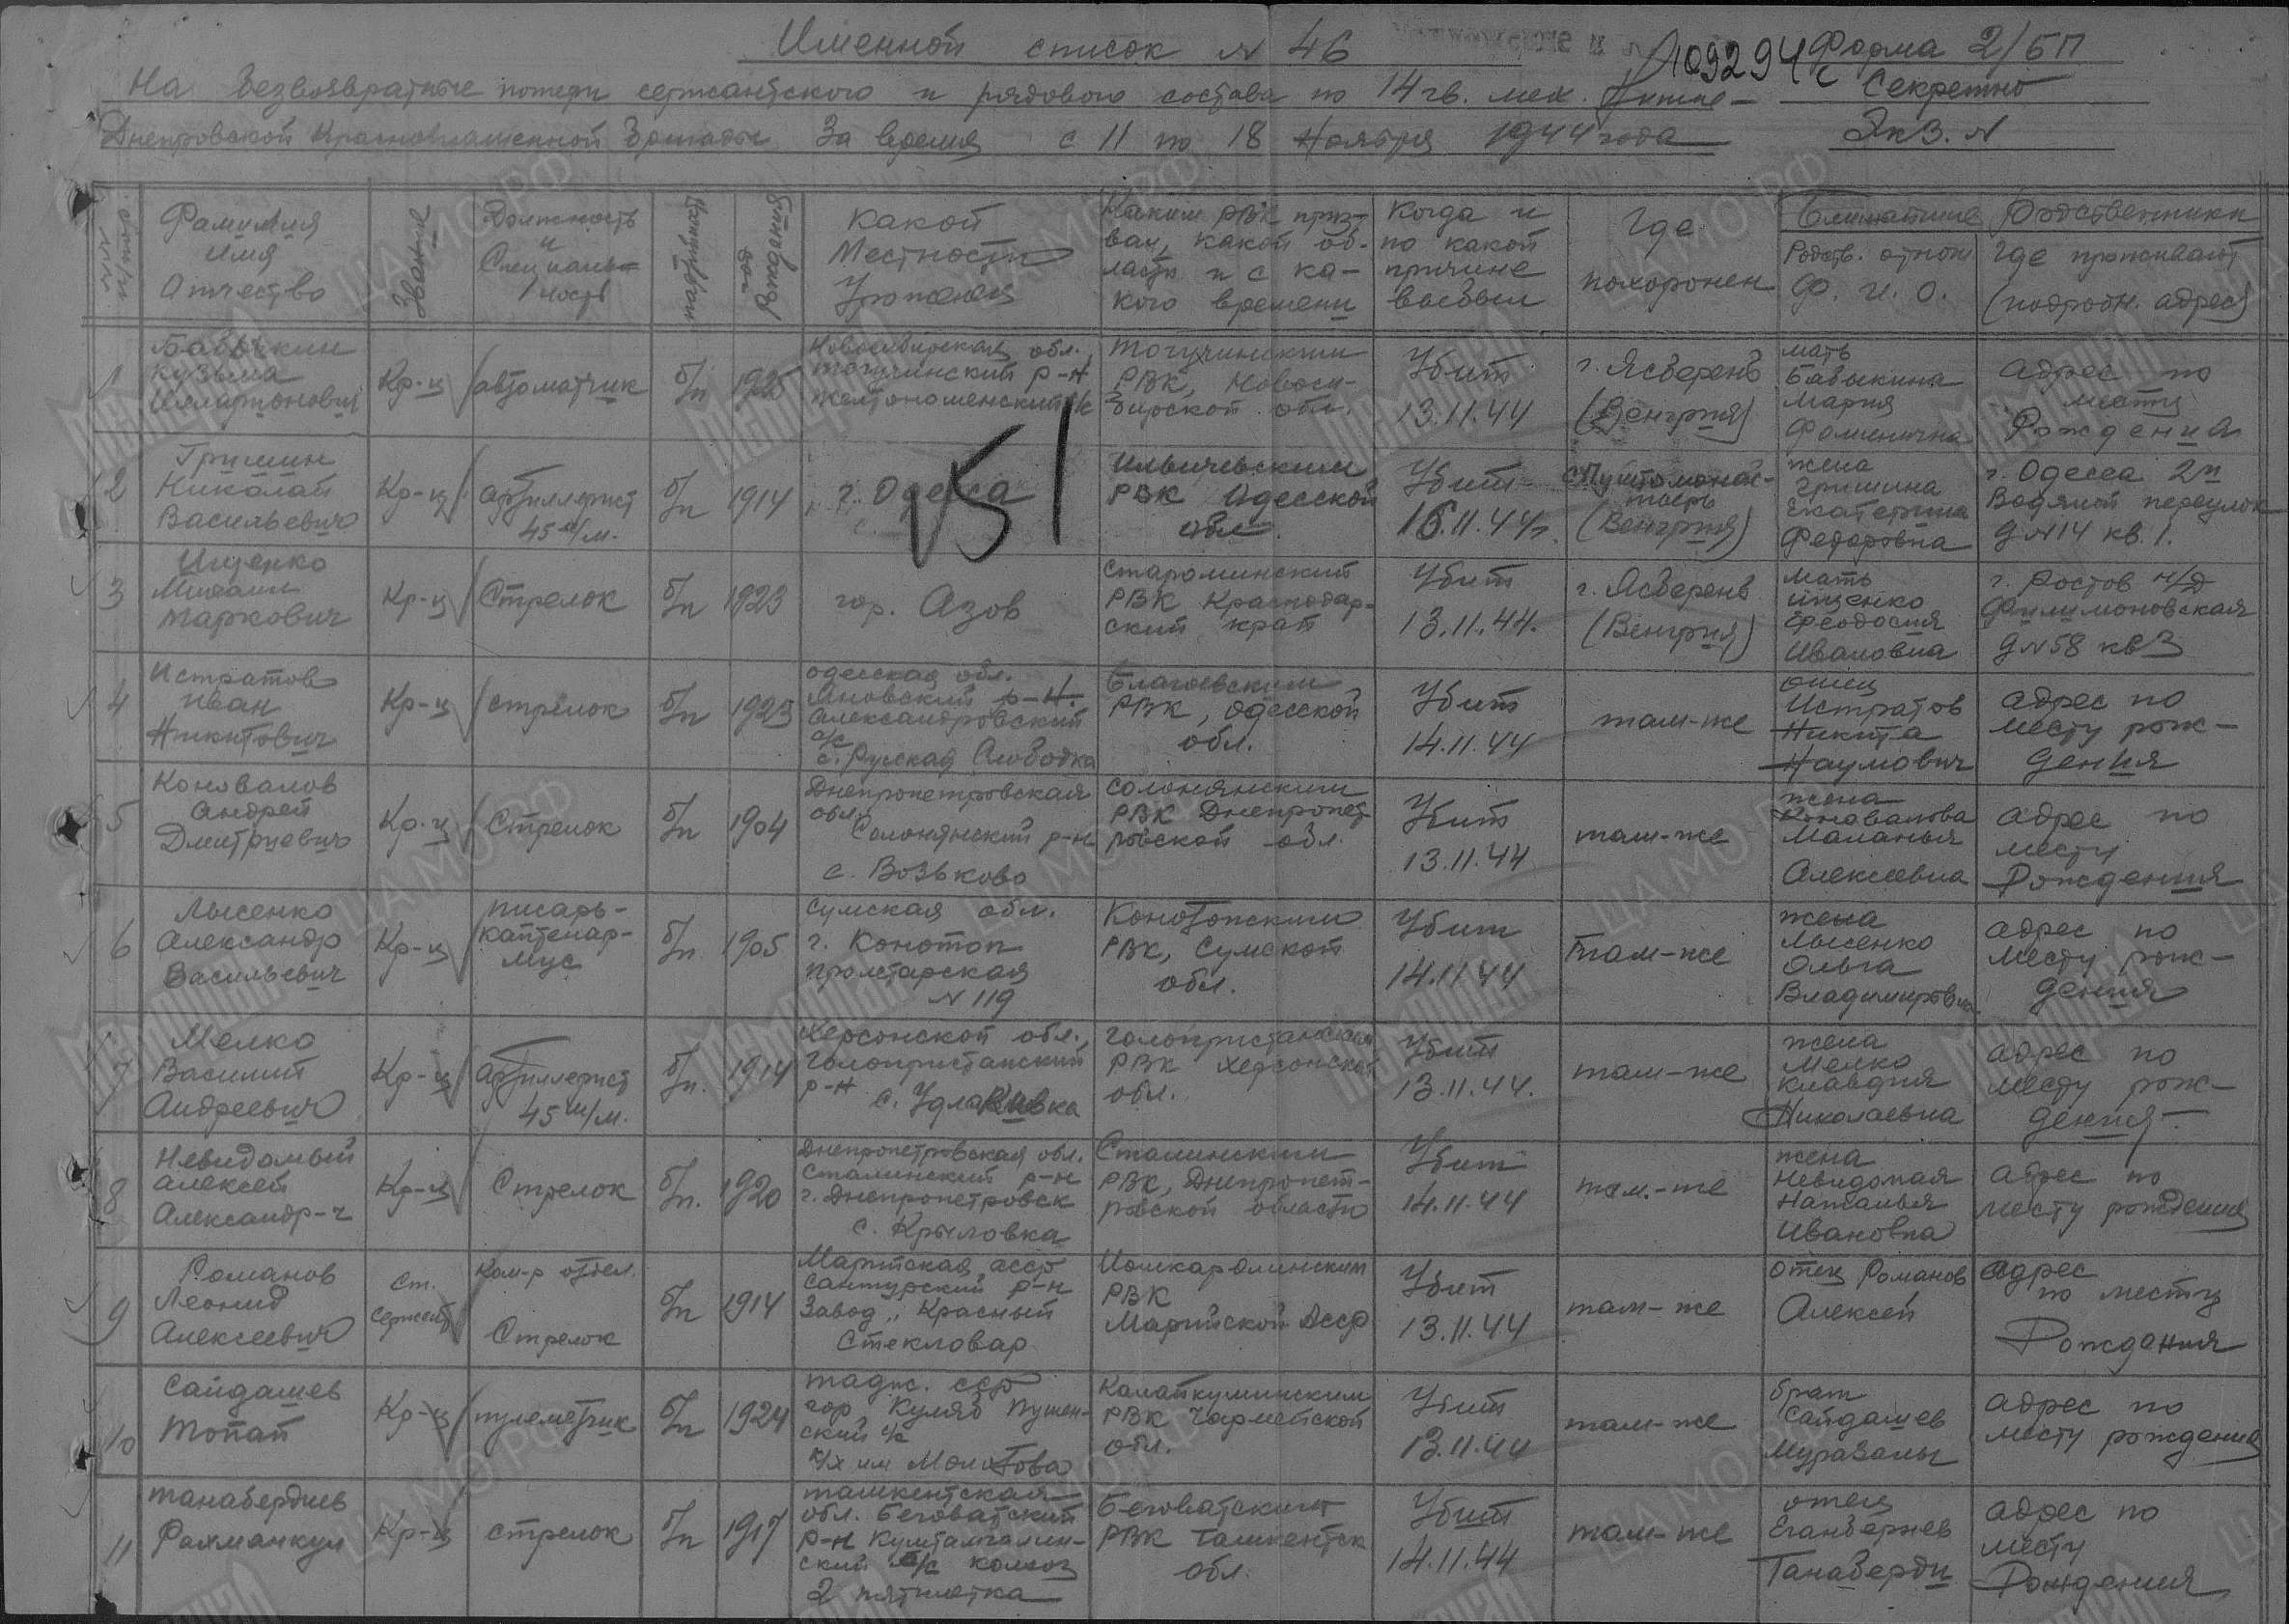 Именной список № 46
109294с
Форма 2/БП
На безвозвратные потери сержантского и рядового состава по 14 гв. мех.
Секретно
Днепровской Краснознаменной бригады За время с 11 по 18 Ноября 1944 года
Экз. №
Фамилия Имя Отчество
Звание
Должность и Специальность
Партийн
какой Местности Уроженец
Каким РВК призван, какой области и с какого времени
Когда и по какой причине выбыл
Где похоронен
Ближайшие Родственники
Родств. отнош. Ф. И. О.
Где проживают (подробн. адрес)
1
Бабыкин
Кузьма
Илларионович
Кр-ц
автоматчик
б/п
1925
Новосибирская обл.
Тогучинский р-н
Тогучинским
РВК, Новоси-
бирской обл.
Убит
13.11.44
г. Ясберень
(Венгрия)
мать
Бабыкина
Мария
Фоминична
Адрес по
месту
Рождения
51
2
Гришин
Николай
Васильевич
Кр-ц
артиллерист
45 м/м.
б/п
1914
г. Одесса
Ильичевским
РВК Одесской
обл.
Убит
16.11.44г.
(Венгрия)
жена
Гришина
Екатерина
Федоровна
г. Одесса 2й
Водяной переулок
д №14 кв. 1.
3
Ищенко
Михаил
Маркович
Кр-ц
Стрелок
б/п
1923
гор. Азов
Староминский
РВК Краснодар-
ский край
Убит
13.11.44.
г. Ясберень
(Венгрия)
мать
Ищенко
Феодосия
Ивановна
г. Ростов н/Д
Филимоновская
д №58 кв 3
4
Истратов
Иван
Никитович
Кр-ц
стрелок
б/п
1923
Одесская обл.
Александровский
с/с
с. Русская Слободка
Благоевским
РВК, Одесской
обл.
Убит
14.11.44
там-же
отец
Истратов
Никита
Наумович
адрес по
месту рож-
дения
5
Коновалов
Андрей
Дмитриевич
Кр-ц
Стрелок
б/п
1904
Днепропетровская
обл.
Солонянский р-н
с. Возьково
Солонянским
РВК Днепропет-
ровской обл.
Убит
13.11.44
там-же
жена
Коновалова
Маланья
Алексеевна
адрес по
месту
Рождения
6
Лысенко
Александр
Васильевич
Кр-ц
писарь-
каптенар-
мус
б/п
1905
Сумская обл.
г. Конотоп
Пролетарская
№ 119
Конотопским
РВК, Сумской
обл.
Убит
14.11.44
там-же
жена
Лысенко
Ольга
Владимировна
адрес по
месту рож-
дения
7
Мелко
Василий
Андреевич
Кр-ц
Артиллерист
45 м/м.
б/п.
1914
Херсонской обл.,
Голопристанский
р-н
Голопристанским
РВК Херсонской
обл.
Убит
13.11.44.
там-же
жена
Мелко
Клавдия
Николаевна
адрес по
месту рож-
дения
8
Невидомый
Алексей
Александр-ч
Кр-ц
Стрелок
б/п.
1920
Днепропетровская обл.
Сталинский р-н
г. Днепропетровск
с. Крыловка
Сталинским
РВК, Днепропет-
ровской области
Убит
14.11.44
там-же
жена
Невидомая
Наталья
Ивановна
адрес по
месту рождения
9
Романов
Леонид
Алексеевич
Ст.
сержант
Ком-р отдел.
Стрелок
б/п
1914
Марийская асср
Завод „Красный
Стекловар
Йошкаролинским
РВК
Марийской Асср
Убит
13.11.44
там-же
отец Романов
Алексей
адрес
по месту
Рождения
10
Сайдашев
Топай
Кр-ц
пулеметчик
б/п
1924
Тадж. сср
гор Куляб
к/х им Молотова
РВК
обл.
Убит
13.11.44
там-же
брат
Сайдашев
Муразалы
адрес по
месту рождения
11
Танабердиев
Рахманкул
Кр-ц
стрелок
б/п
1917
Ташкентская
обл. Беговатский
р-н
ский с/с колхоз
2 пятилетка
Беговатским
РВК Ташкентск
обл.
Убит
14.11.44
там-же
отец
Танаберди
адрес по
месту
Рождения